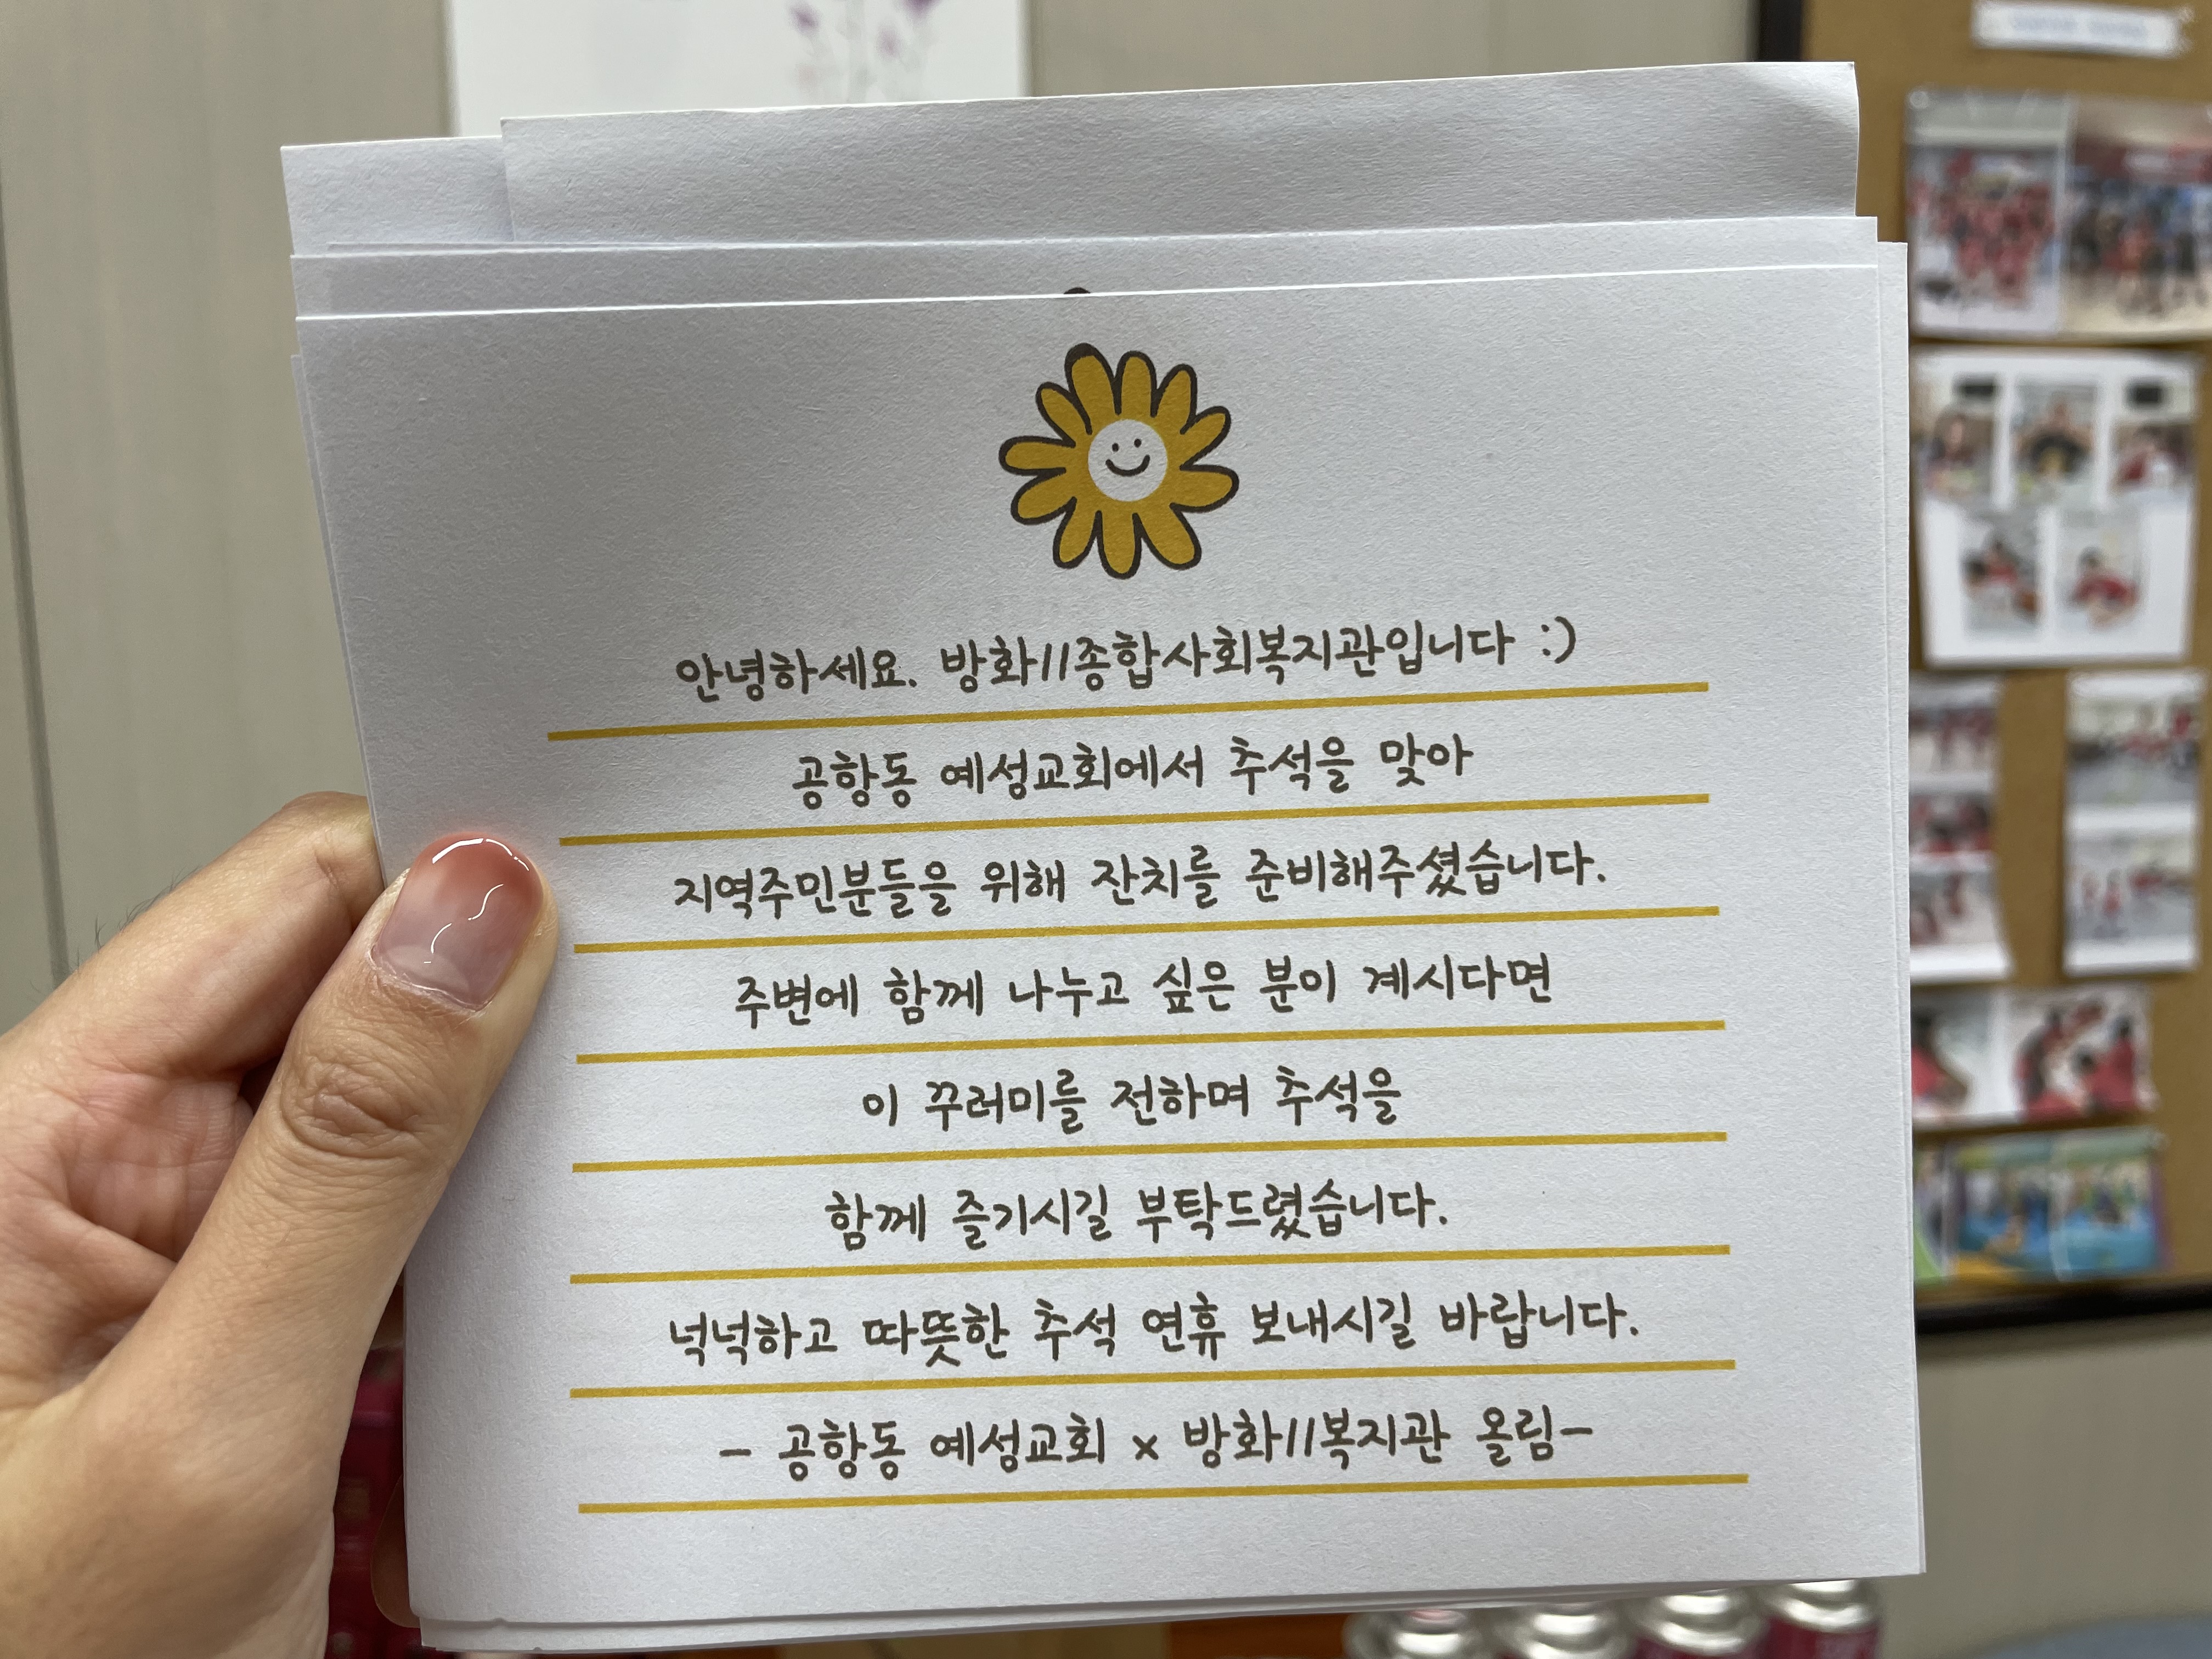 안녕하세요. 방화11종합사회복지관입니다 :)
공항동 예성교회에서 추석을 맞아
지역주민분들을 위해 잔치를 준비해주셨습니다.
주변에 함께 나누고 싶은 분이 계시다면
이 꾸러미를 전하며 추석을
함께 즐기시길 부탁드렸습니다.
넉넉하고 따뜻한 추석 연휴 보내시길 바랍니다.
- 공항동 예성교회 x 방화11복지관 올림-